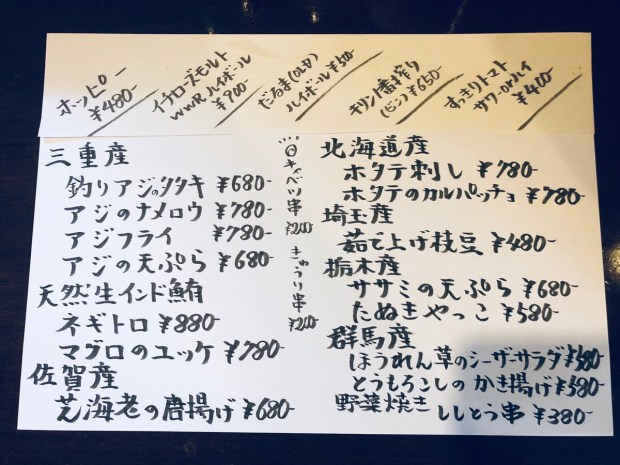 ホッピー
¥480-
イチローズモルト
WWRハイボール
¥700-
だるま(OLD)
ハイボール ¥500-
キリン一番搾り
(ビン) ¥650-
すっきりトマト
サワーorハイ
¥400-
三重産
釣りアジのタタキ ¥680-
アジのナメロウ ¥780-
アジフライ ¥780-
アジの天ぷら ¥680-
天然生インド鮪
ネギトロ ¥880-
マグロのユッケ ¥780-
佐賀産
芝海老の唐揚げ ¥680-
キャベツ串 ¥200
きゅうり串 ¥200
北海道産
ホタテ刺し ¥780-
ホタテのカルパッチョ ¥780-
埼玉産
茹で上げ枝豆 ¥480-
栃木産
ササミの天ぷら ¥680-
たぬきやっこ ¥580-
群馬産
ほうれん草のシーザーサラダ ¥580-
とうもろこしのかき揚げ ¥580-
野菜焼き ししとう串 ¥380-